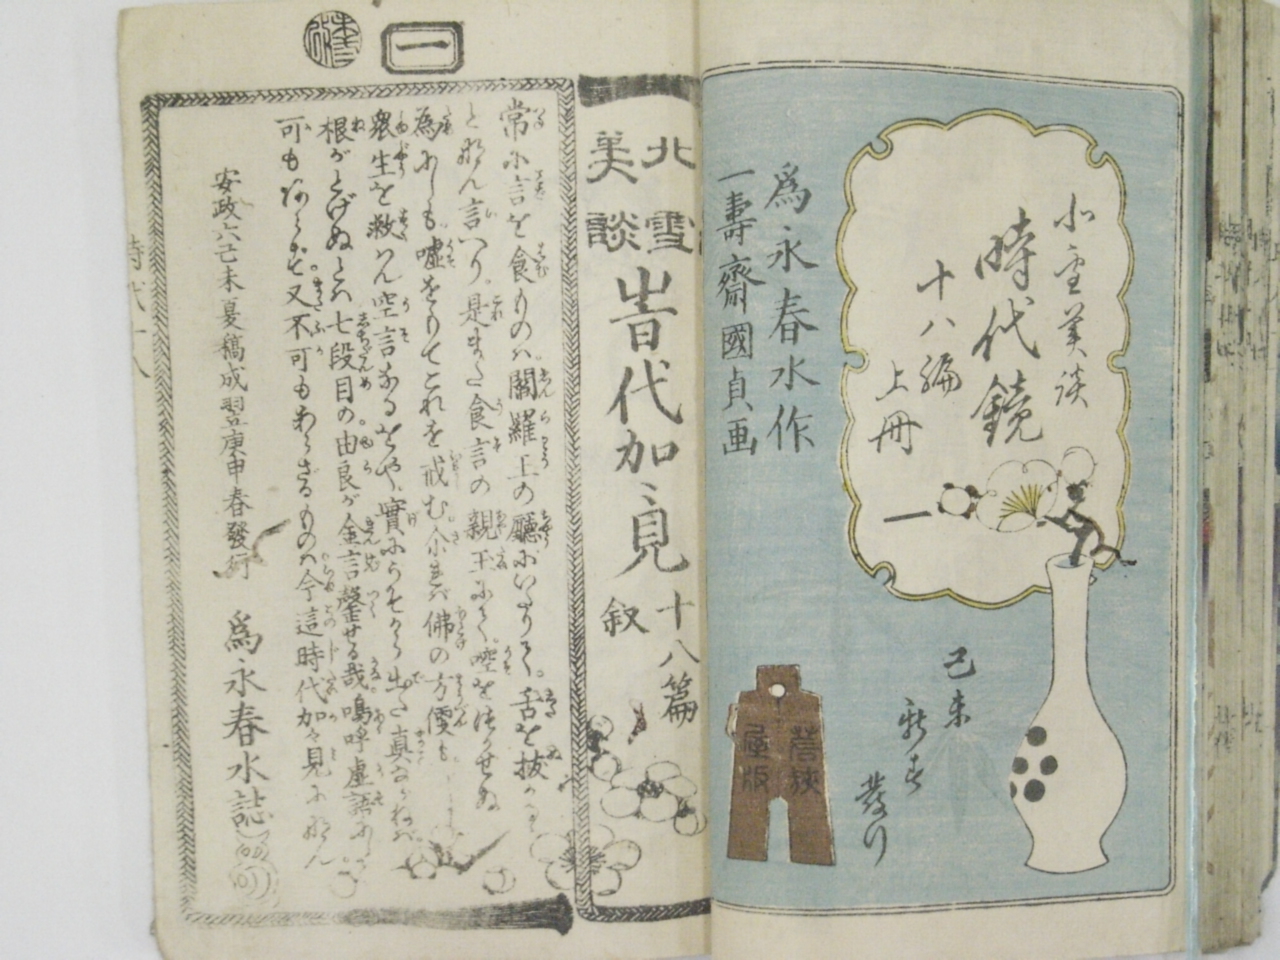 北雪美談
時代鏡
十八編
上冊
為永春水作
一壽齋國貞画
己未
新春
發行
蔦狹
屋版
北雪
美談
旹代加ゞ見
十八篇
叙
一
常に言を食ものは。閻羅王の廳にいたりて。舌を抜かるゝ
となん言へり。是また食言の親玉にて。嘘をつかせぬ
為にしも嘘をもてこれを戒む。尓れば佛の方便も
衆生を救はん空言なるをや。實にうそから出た真なれば。
根がとげぬとは七段目の由良が金言罄せる哉。嗚呼虚語に
可もあらず。又不可もあらざるものは今這時代加々見になん
安政六己未夏稿成翌庚申春發行
為永春水誌
時代十八